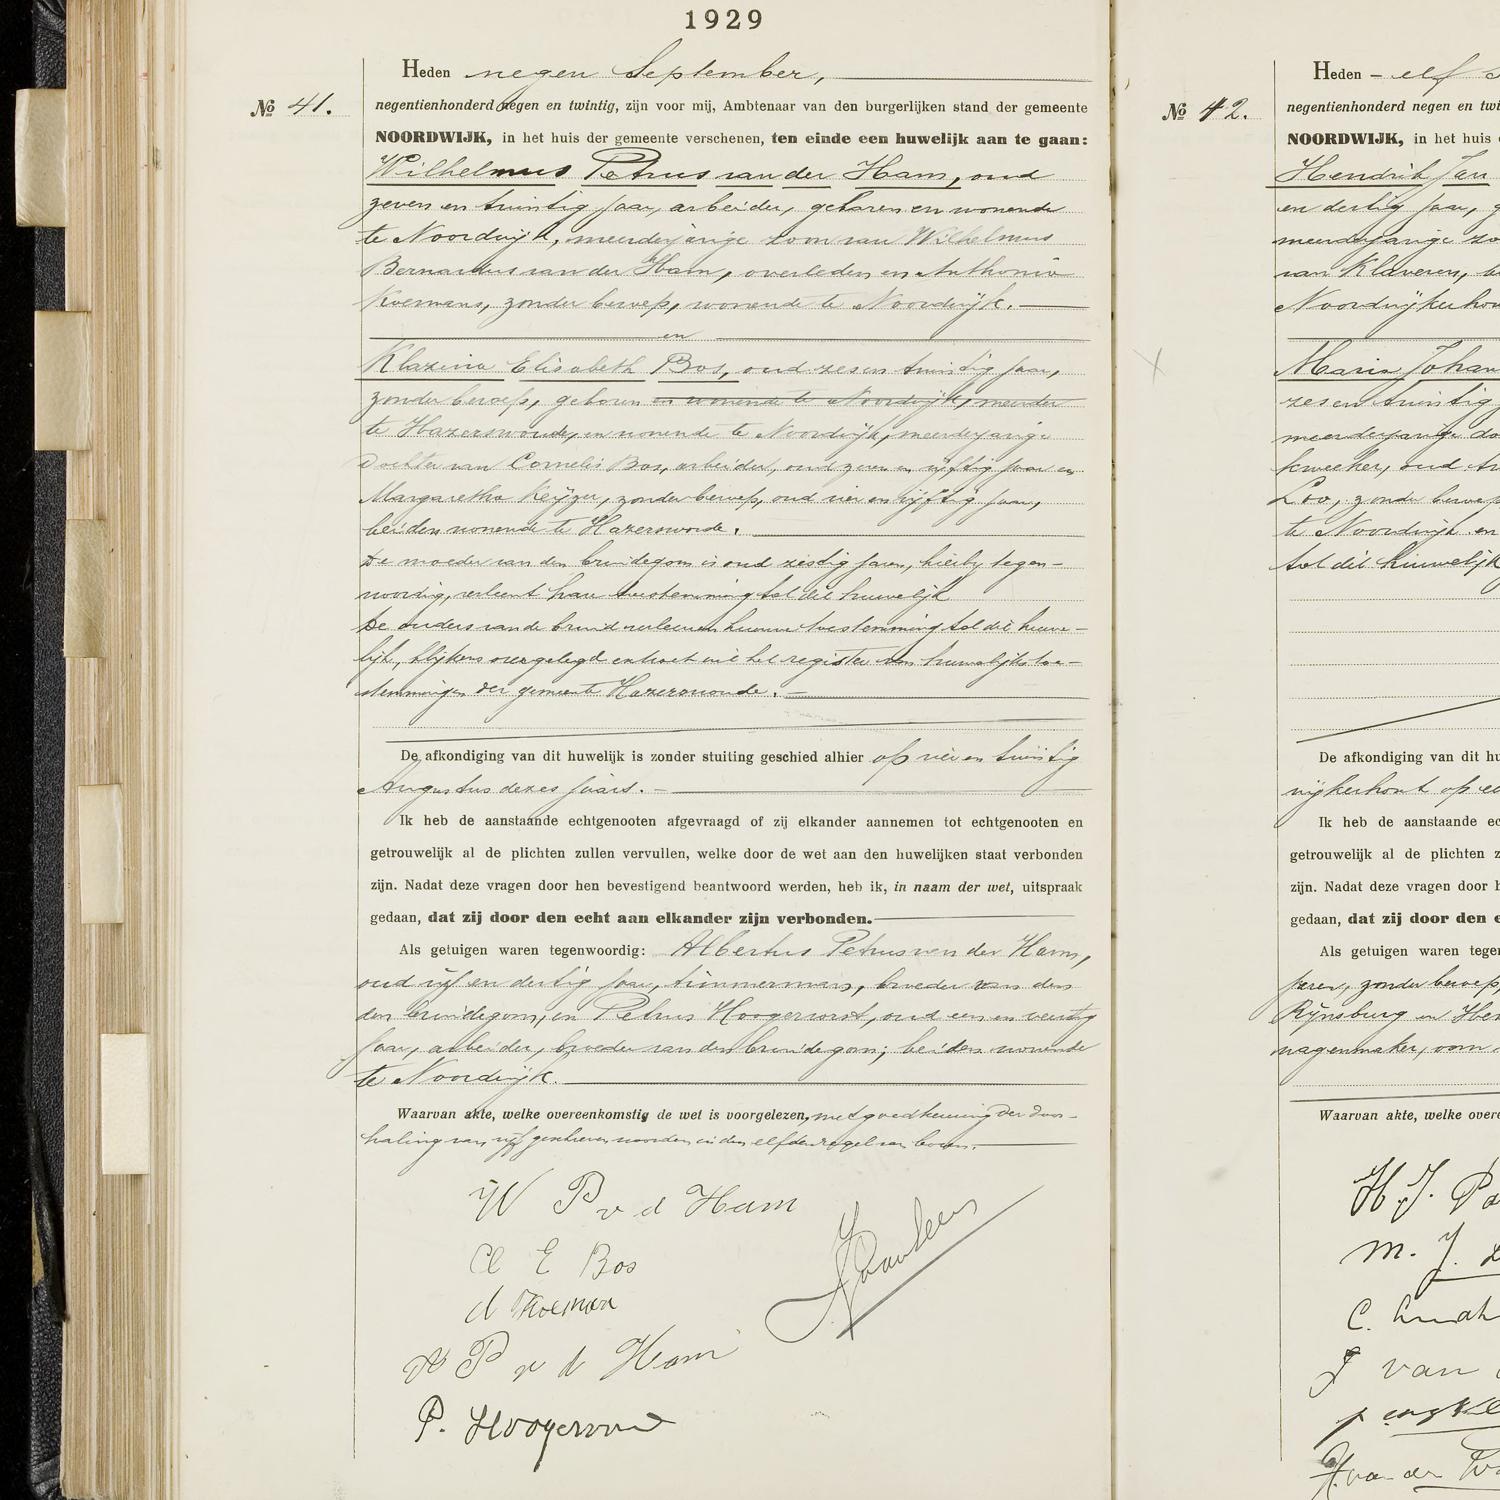 1929
Heden negen September,
№ 41. negentienhonderd negen en twintig, zijn voor mij, Ambtenaar van den burgerlijken stand der gemeente
NOORDWIJK, in het huis der gemeente verschenen, ten einde een huwelijk aan te gaan:
Wilhelmus Petrus van der Ham, oud
zeven en twintig jaar, arbeider, geboren en wonende
te Noordwijk, meerderjarige zoon van Wilhelmus
Bernardus van der Ham, overleden en Anthonia
Koemans, zonder beroep, wonende te Noordwijk.
en
Klazina Elisabeth Bos, oud zes en twintig jaar,
zonder beroep, geboren en wonende te Noordwijk, meerder
te Hazerswoude, en wonende te Noordwijk, meerderjarige
dochter van Cornelis Bos, arbeider, oud zeven en vijftig jaar en
Margaretha Keijzer, zonder beroep, oud vier en vijftig jaar,
beiden wonende te Hazerswoude.
De moeder van den bruidegom is oud zestig jaren, hierbij tegen-
woordig, verleent haar toestemming tot dit huwelijk
De ouders van de bruid verleenen hunne toestemming tot dit huwe-
lijk, blijkens overgelegd extract uit het register van huwelijkstoe-
stemmingen der gemeente Hazerswoude.
De afkondiging van dit huwelijk is zonder stuiting geschied alhier op vier en twintig
Augustus dezes jaars.
Ik heb de aanstaande echtgenooten afgevraagd of zij elkander aannemen tot echtgenooten en
getrouwelijk al de plichten zullen vervullen, welke door de wet aan den huwelijken staat verbonden
zijn. Nadat deze vragen door hen bevestigend beantwoord werden, heb ik, in naam der wet, uitspraak
gedaan, dat zij door den echt aan elkander zijn verbonden.
Als getuigen waren tegenwoordig: Albertus Petrus van der Ham,
oud vijf en dertig jaar, timmerman, broeder van den
den bruidegom, en Petrus Hoogervorst, oud een en veertig
jaar, arbeider, broeder van den bruidegom; beiden wonende
te Noordwijk.
Waarvan akte, welke overeenkomstig de wet is voorgelezen, met goedkeuring der door-
haling van vijf geschreven woorden in den elfden regel van boven.
W P v d Ham
Cl E Bos
A P v d Ham
P. Hoogervorst
Heden - elf
№ 42. negentienhonderd negen en twi
NOORDWIJK, in het huis
Hendrik Jan
en dertig jaar,
meerderjarige zo
van Klaveren,
Noordwijkerhou
Maria Johan
zes en twintig
meerderjarige do
kweeker, oud
Loo, zonder beroep
te Noordwijk en
tot dit huwelijk
De afkondiging van dit hu
wijkerhout op
Ik heb de aanstaande ec
getrouwelijk al de plichten z
zijn. Nadat deze vragen door h
gedaan, dat zij door den e
Als getuigen waren teger
zonder beroep,
Rijnsburg en
wagenmaker, oom
Waarvan akte, welke over
H. J.
M. J.
C.
J van